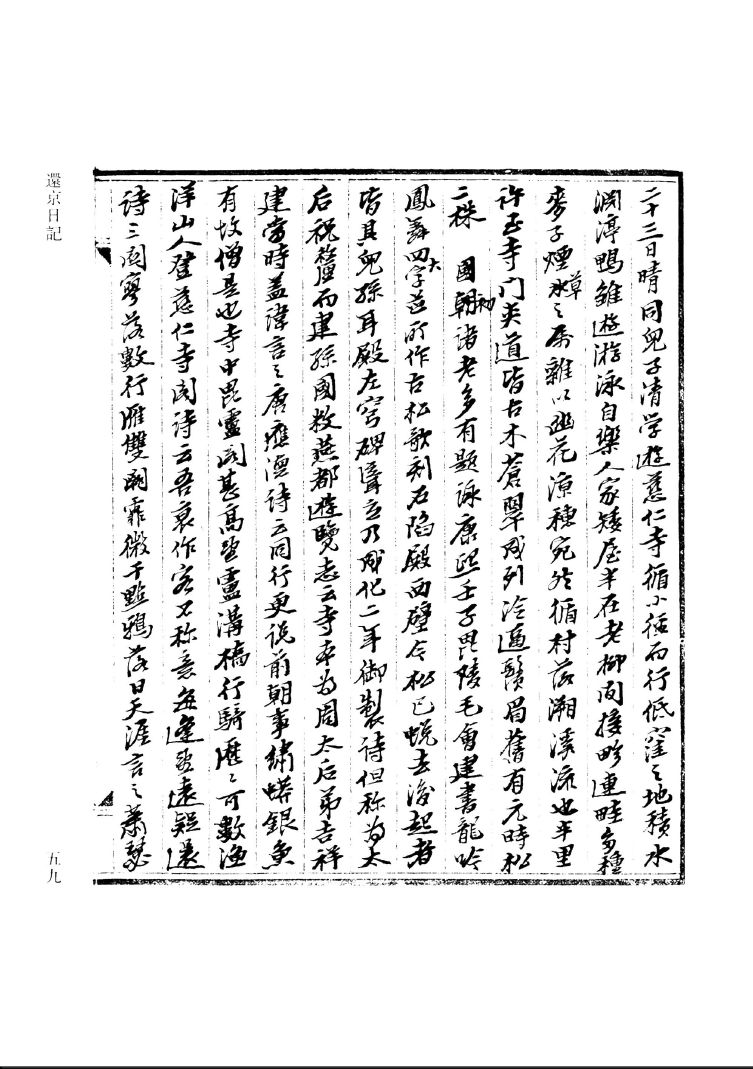 還京日記
二十三日晴同兒子清学遊慈仁寺循小徑而行低窪之地積水
淵渟鴨雛遊游泳自樂人家矮屋半在老柳间接畛連畦多種
麥子煙草水之屬雜以幽花涼穗宛然循村落溯溪流也半里
许至寺门夹道皆古木蒼翠成列冷逼鬚眉舊有元時松
二株 國朝初諸老多有題詠康熙壬子毘陵毛會建書龍吟
鳳舞四大字並所作古松歌刻石陷殿西壁今松已蛻去後起者
皆其兒孫耳殿左穹碑聳立乃成化二年御製詩但称為太
后祝釐而建孫國敉燕都遊覽志云寺本為周太后弟吉祥
建當時蓋諱言之唐應澂诗云同行更说前朝事繡蟒銀魚
有故僧是也寺中毘盧阁甚高望盧溝橋行騎歷歷可數渔
洋山人登慈仁寺阁诗云吾衰作客不称意每逢登遠疑還
诗三阁寥落數行雁雙树霏微千點鴉落日天涯言之萧瑟
五九